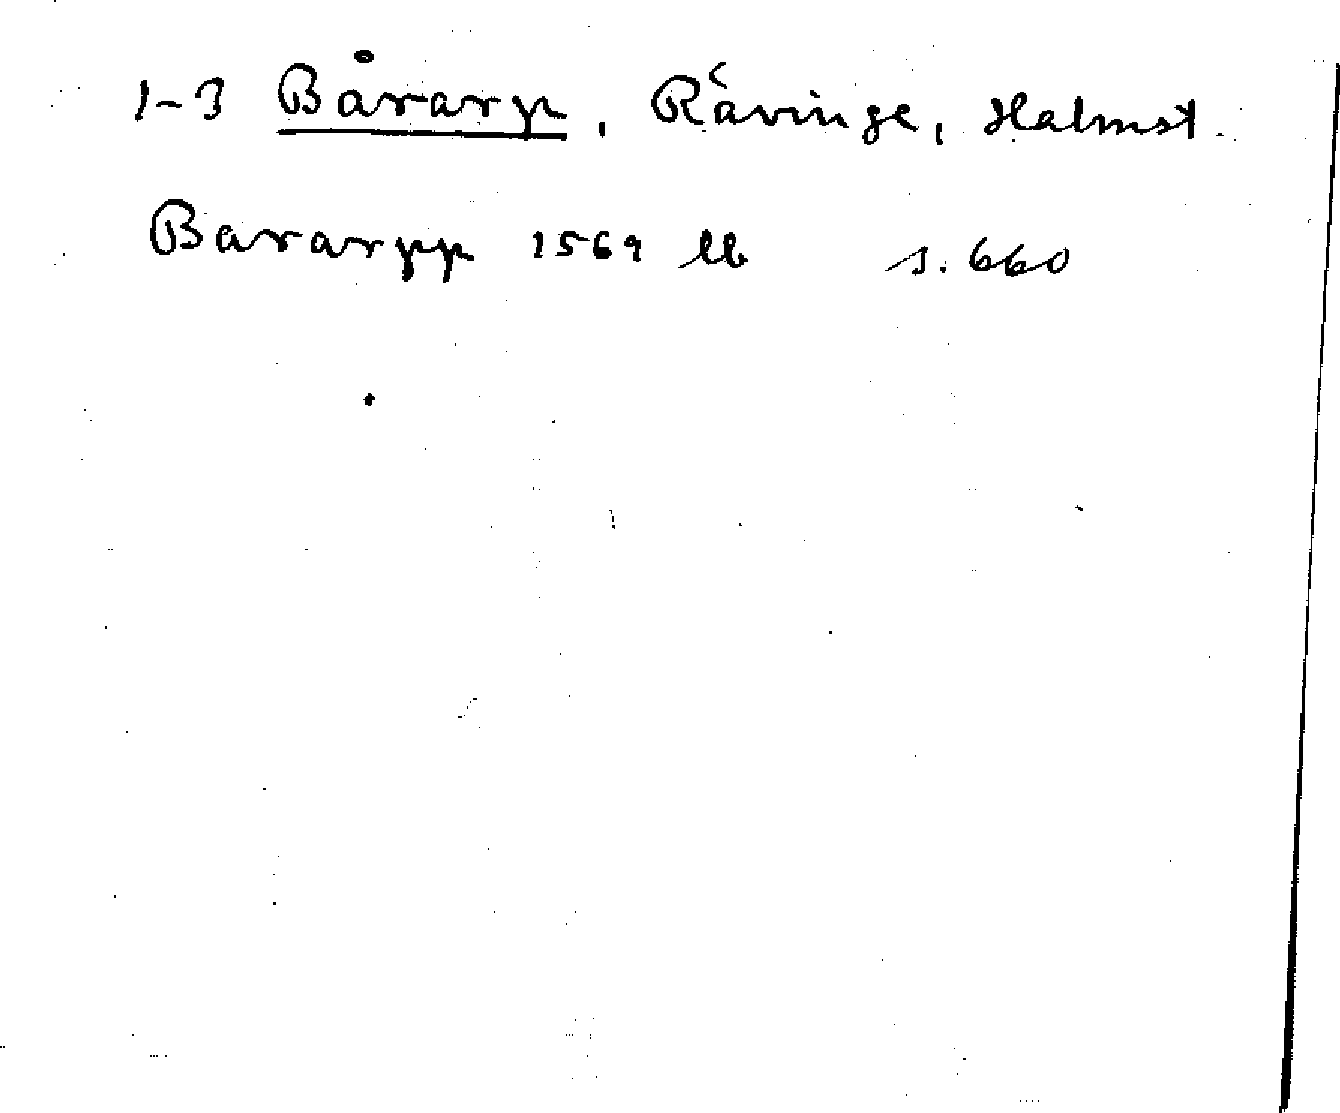 1-3 Bårarp, Råvinge, Halmst.
Bararpp 1569 lb s. 660